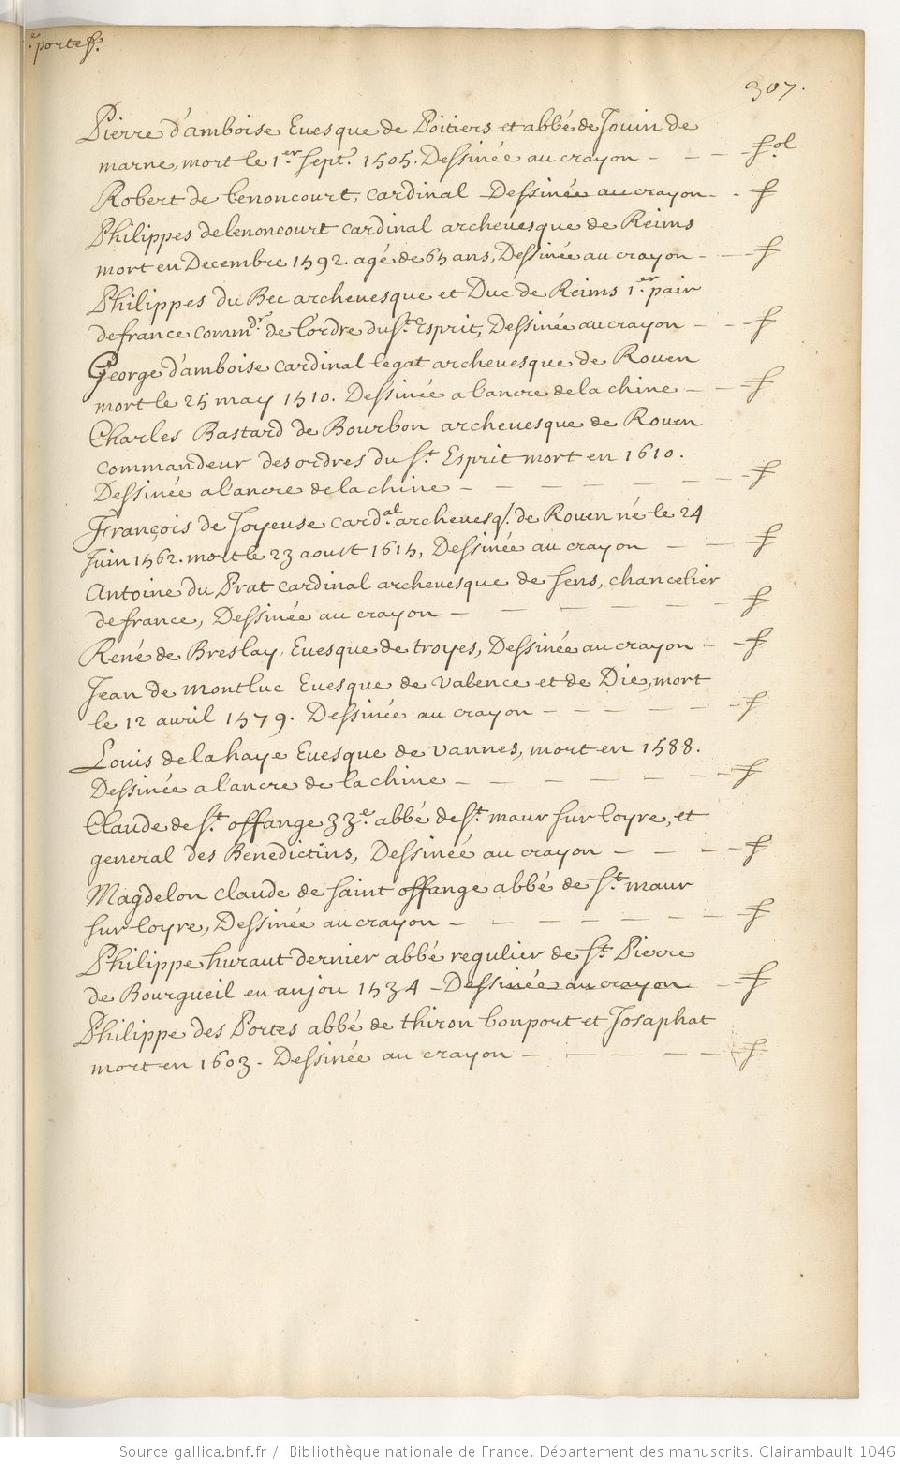 e portef.
307.
Pierre d'amboise Evesque de Poitiers et abbé de Jouin de
marne, mort le 1.er sept.e 1505. Dessinée au crayon - - - f.ol
Robert de Lenoncourt, cardinal Dessinée au crayon - - f
Philippes de lenoncourt cardinal archevesque de Reims
mort en Decembre 1592. agé de 65 ans, Dessinée au crayon - - f
Philippes du Bec archevesque et Duc de Reims 1.er pair
de france comm.dr de l'ordre du st Esprit, Dessinée au crayon - - f
George d'amboise cardinal legat archevesque de Rouen
mort le 25 may 1510. Dessinée a l'ancre de la chine - - f
Charles Bastard de Bourbon archevesque de Rouen
commandeur des ordres du st Esprit mort en 1610.
Dessinée a l'ancre de la chine - - - - - - f
François de Joyeuse card.al archevesq. de Rouen né le 24
Juin 1562. mort le 23 aoust 1615, Dessinée au crayon - - f
Antoine du Prat cardinal archevesque de sens, chancelier
de france, Dessinée au crayon - - - - - f
René de Breslay, Evesque de troyes, Dessinée au crayon - f
Jean de montluc Evesque de valence et de Die, mort
le 12 avril 1579. Dessinée au crayon - - - - - f
Louis de la haye Evesque de vannes, mort en 1588.
Dessinée a l'ancre de la chine - - - - - - f
Claude de st offange 33.e abbé de st maur sur loyre, et
general des Benedictins, Dessinée au crayon - - - f
Magdelon claude de saint offange abbé de st maur
sur loyre, Dessinée au crayon - - - - - - f
Philippe huraut dernier abbé regulier de st Pierre
de Bourgueil en anjou 1534 - Dessinée au crayon - f
Philippe des Portes abbé de thiron bonport et Josaphat
mort en 1603 - Dessinée au crayon - - - - f
Source gallica.bnf.fr / Bibliothèque nationale de France. Département des manuscrits. Clairambault 1046